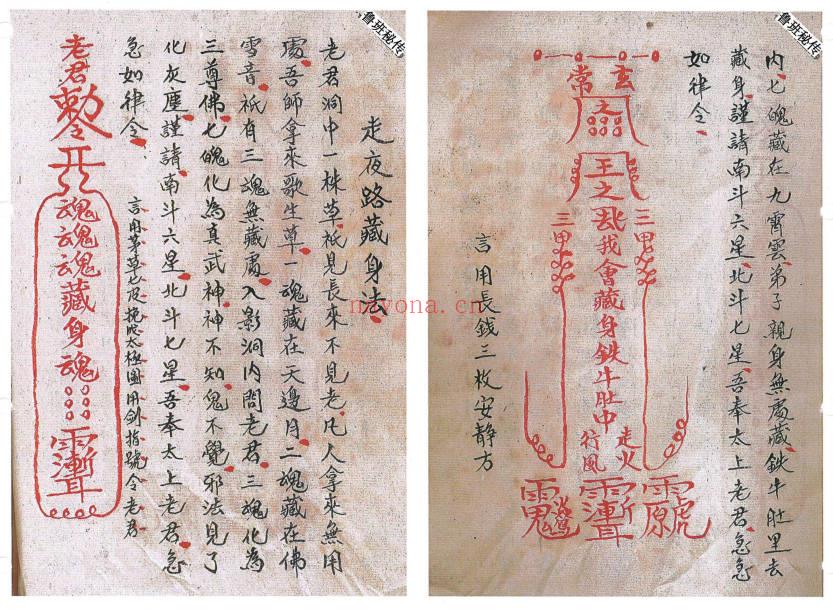 鲁班秘传
内、七魄藏在九霄雲、弟子親身無處藏、鉄牛肚里去
藏身、謹請南斗六星、北斗七星、吾奉太上老君、急急
如律令、
玄
常
之
王
之
我會藏身鉄牛肚中
三甲
三甲
走火
行風
言用長錢三枚安静方
鲁班秘传
走夜路藏身法、
老君洞中一株草、祇見長來不見老、凡人拿來無用
處、吾師拿來歌生草、一魂藏在天邊月、二魂藏在佛
雪音、祇有三魂無藏處、入影洞内問老君、三魂化為
三尊佛、七魄化為真武神、神不知、鬼不覺、邪法見了
化灰塵、謹請南斗六星、北斗七星、吾奉太上老君、急
急如律令、
言用茅草七皮挽成太極圖用劍指號令老君
老君勅令
魂魂魂藏身魂
neyona.cn